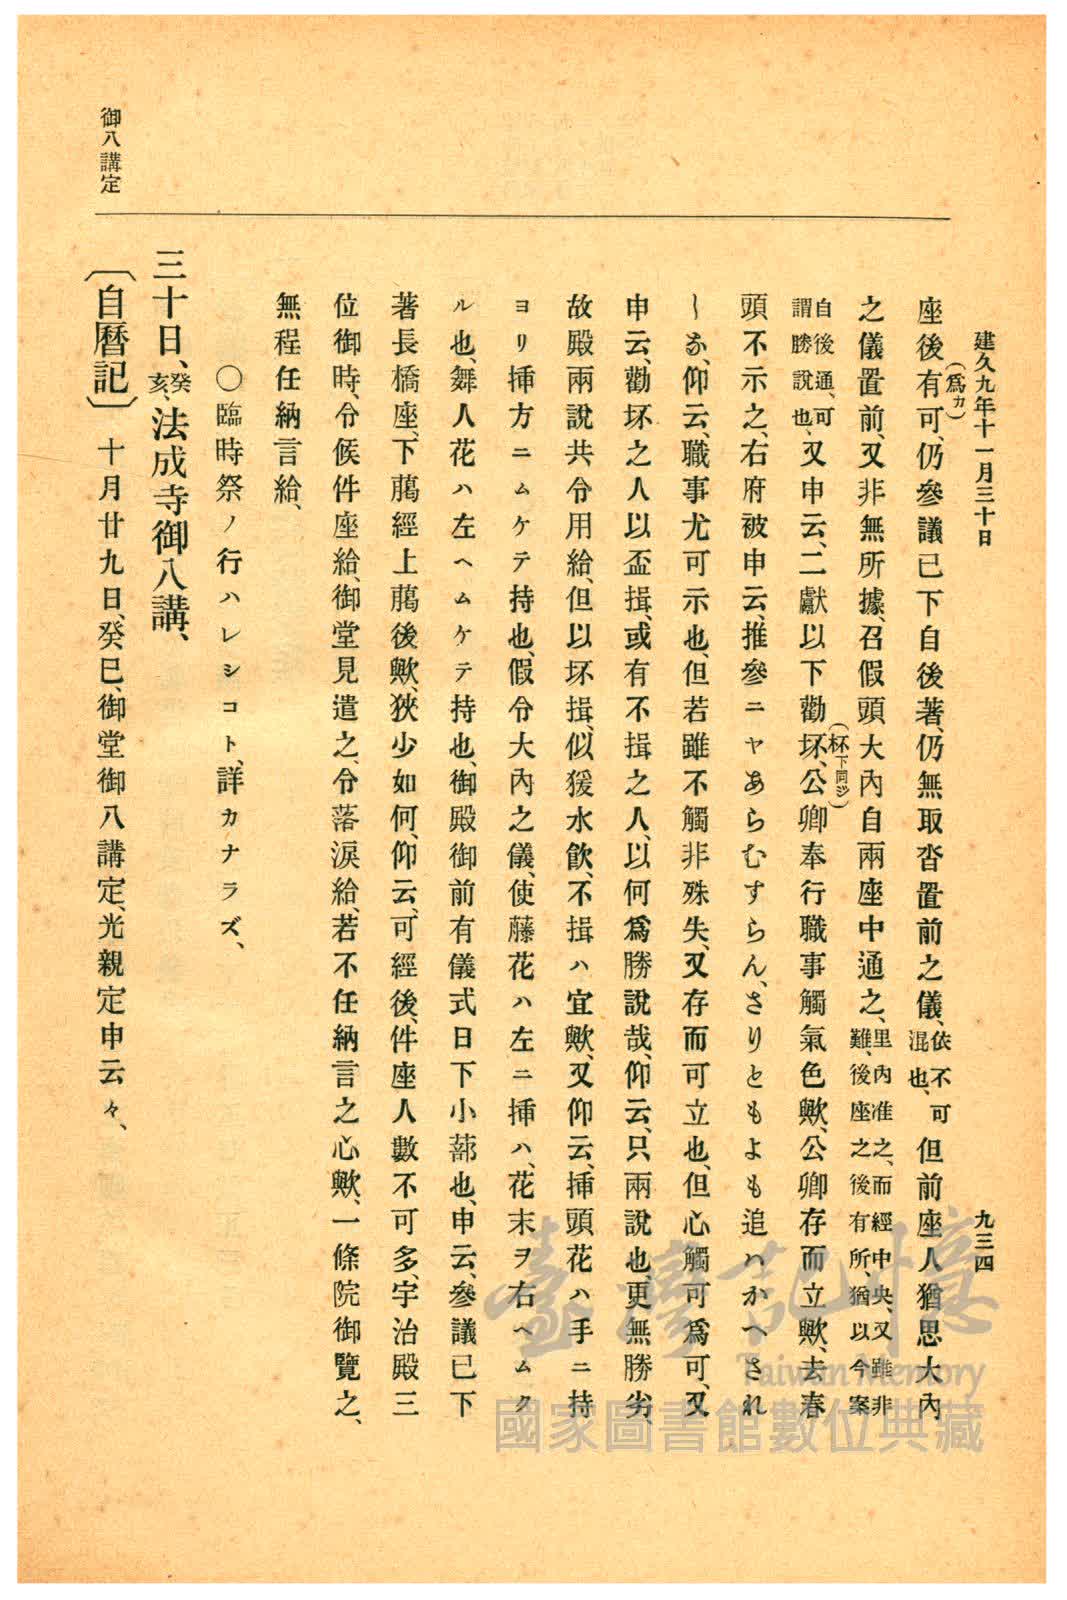 建久九年十一月三十日
九三四
座後有可、仍參議已下自後著、仍無取沓置前之儀、依不可混也、但前座人猶思大內
(爲カ)
之儀置前、又非無所據、召假頭、大內自兩座中通之、里內准之、而經中央、又雖非難、後座之後有所、猶以今案
自後通、可謂勝說也、又申云、二獻以下勸坏、公卿奉行職事觸氣色歟、公卿存而立歟、去春
(杯下同ジ)
頭不示之、右府被申云、推參ニヤあらむすらん、さりともよも追ハかへされ
しな、仰云、職事尤可示也、但若雖不觸非殊失、又存而可立也、但心觸可爲可、又
申云、勸坏之人以盃揖、或有不揖之人、以何爲勝說哉、仰云、只兩說也、更無勝劣、
故殿兩說共令用給、但以坏揖、似猨水飮、不揖ハ宜歟、又仰云、挿頭花ハ手ニ持
ヨリ挿方ニムケテ持也、假令大內之儀、使藤花ハ左ニ挿ハ、花末ヲ右ヘムク
ル也、舞人花ハ左ヘムケテ持也、御殿御前有儀式日下小蔀也、申云、參議已下
著長橋座、下﨟經上﨟後歟、狹少如何、仰云、可經後、件座人數不可多、宇治殿三
位御時、令候件座給、御堂見遣之、令落淚給、若不任納言之心歟、一條院御覽之、
無程任納言給、
〇臨時祭ノ行ハレシコト、詳カナラズ、
三十日、癸亥、法成寺御八講、
〔自曆記〕 十月廿九日、癸巳、御堂御八講定、光親定申云々、
御八講定
臺灣記憶
Taiwan Memory
國家圖書館數位典藏